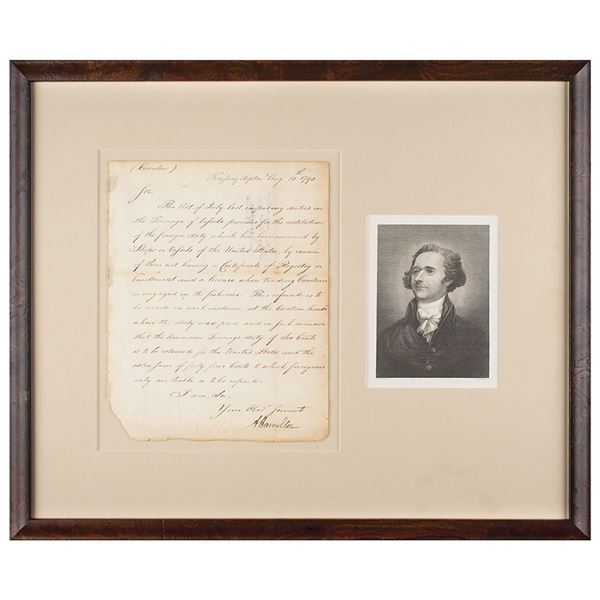 (Circular)
Treasury Departmt Aug 10th 1790
Sir
The Act of July last imposing duties on
the Tonnage of Vessels provides for the restitution
of the foreign duty which has been incurred by
Ships or Vessels of the United States, by reason
of their not having a Certificate of Registry or
Enrollment and a licence when trading Coastwise
or engaged in the fisheries. This refund is to
be made in each instance at the Custom house
where the duty was paid and in such manner
that the American Tonnage duty of Six Cents
is to be retained for the United States and the
extra sum of forty four Cents to which foreigners
only are liable is to be repaid.
I am, Sir,
Your Obedt Servant
A Hamilton